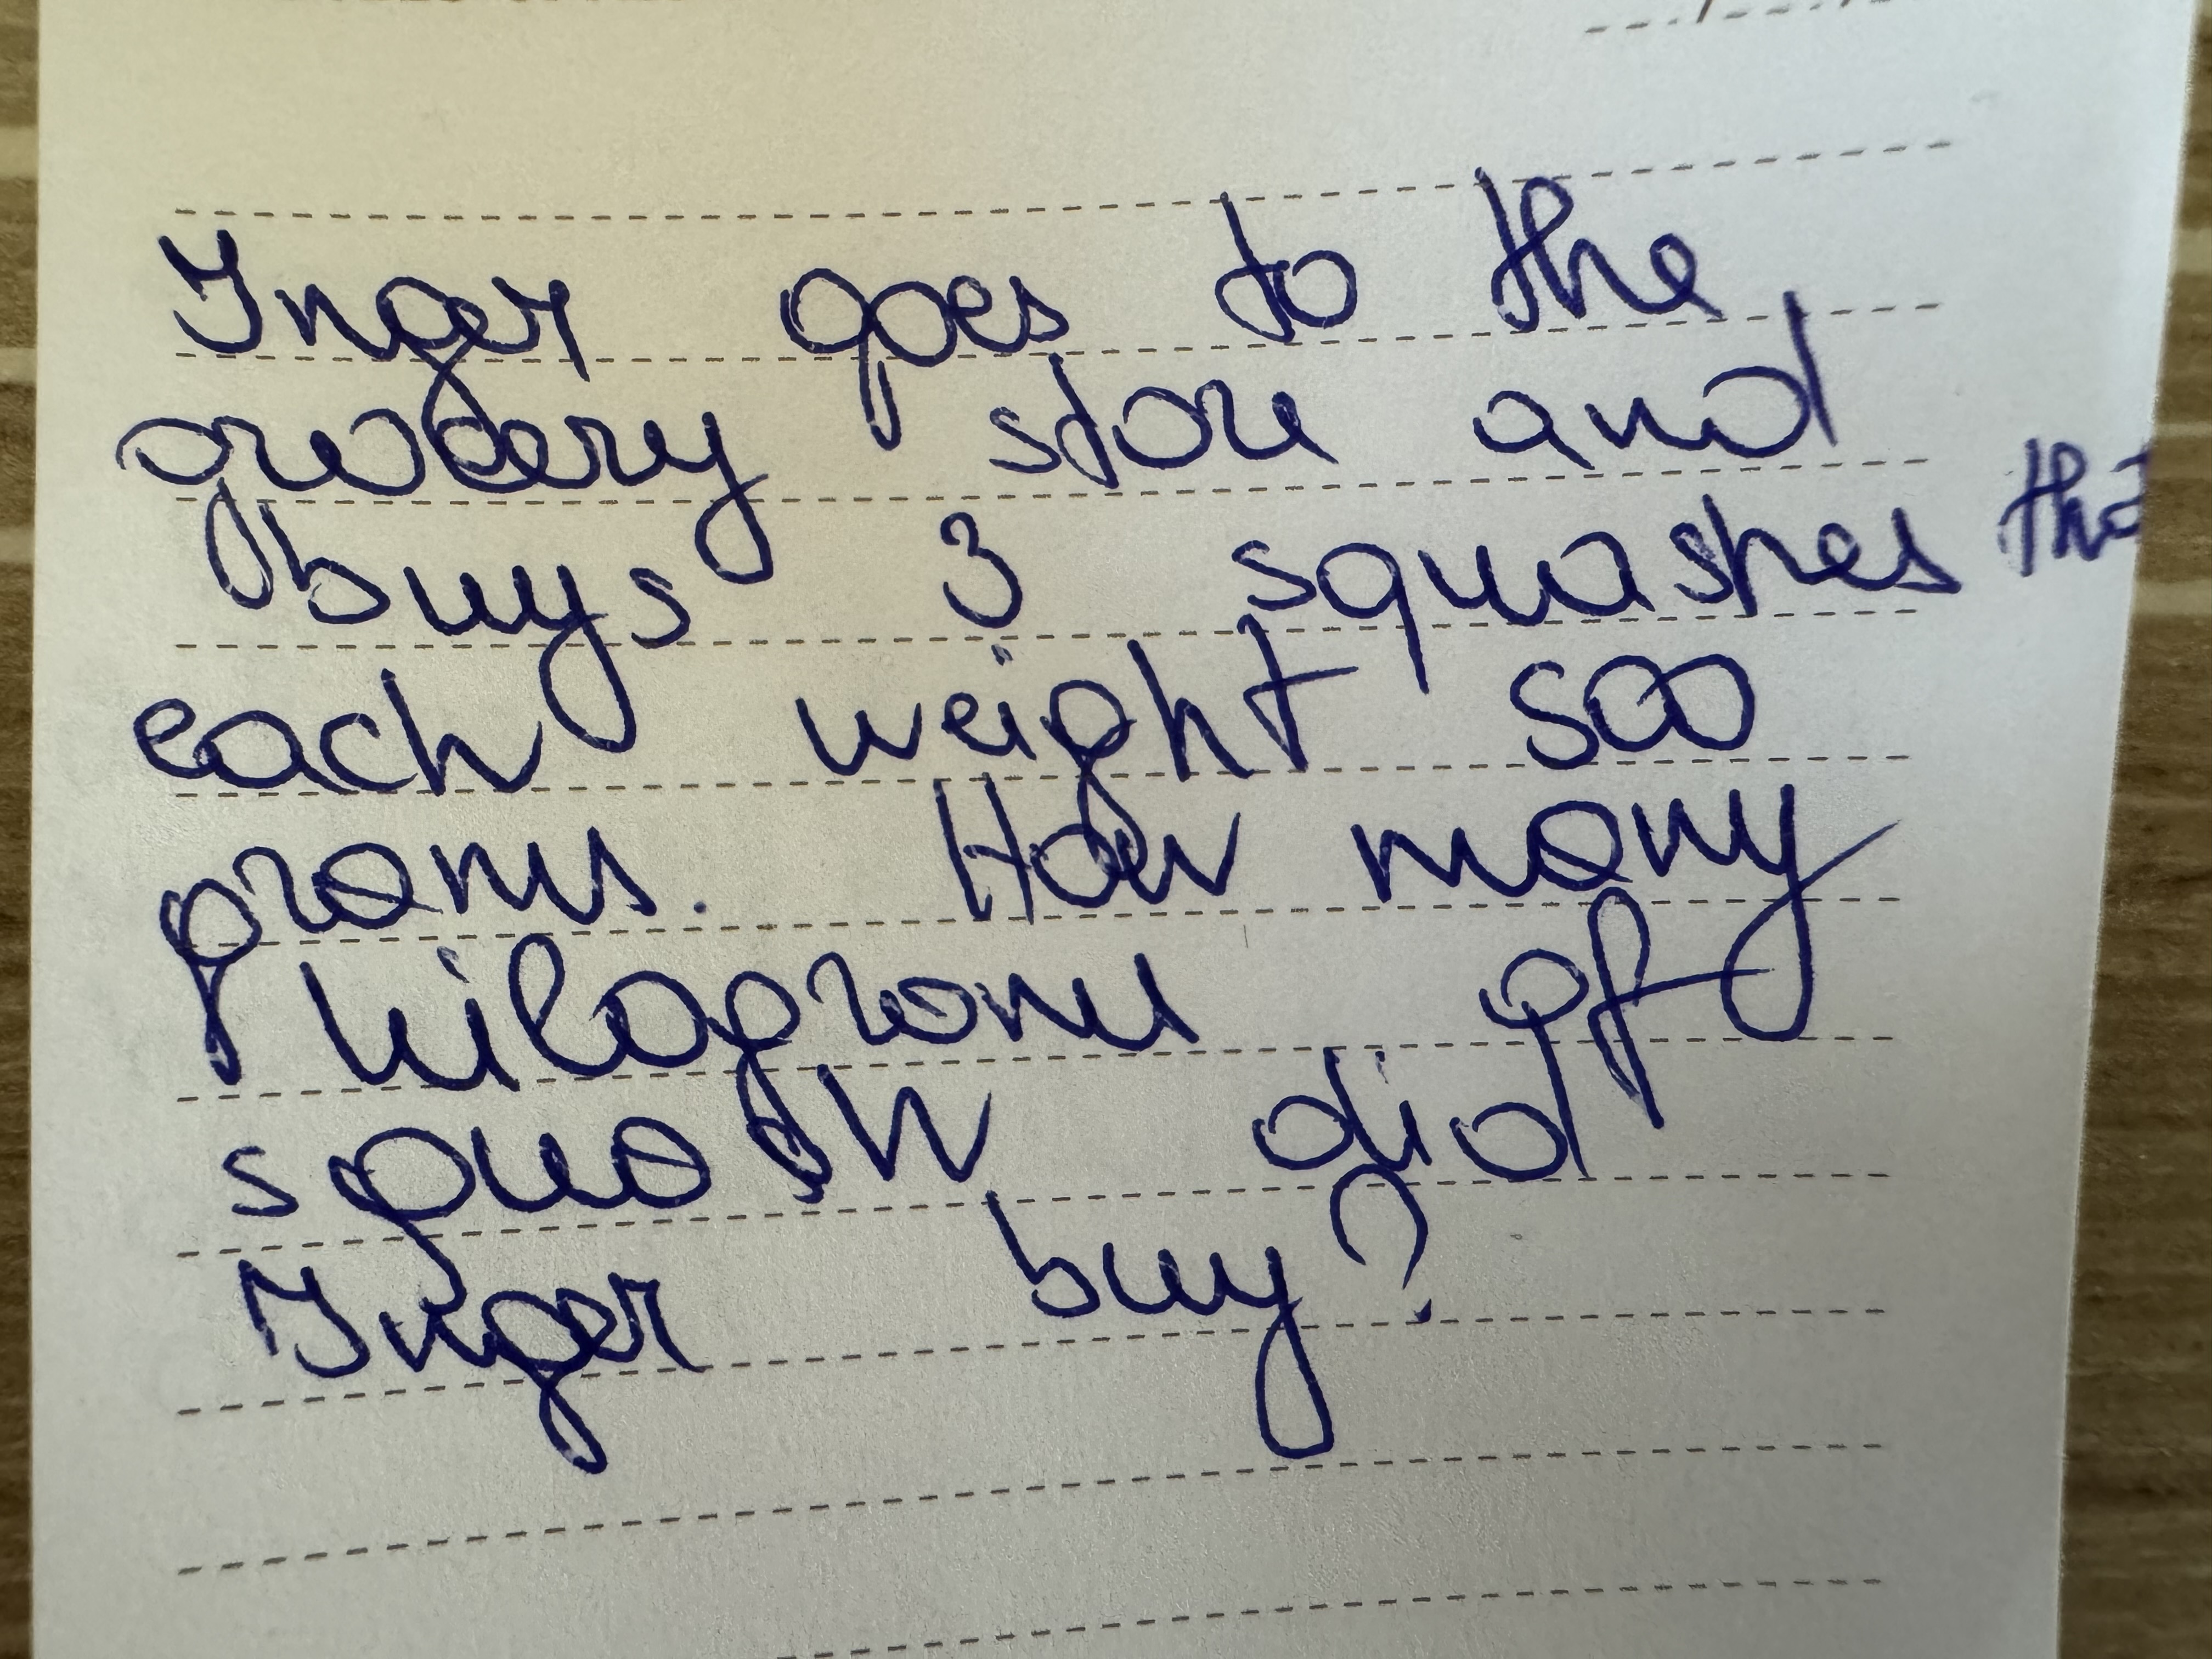 Inger goes to the
grocery store and
buys 3 squashes that
each weight 500
grams. How many
kilograms of
squash did
Inger buy?